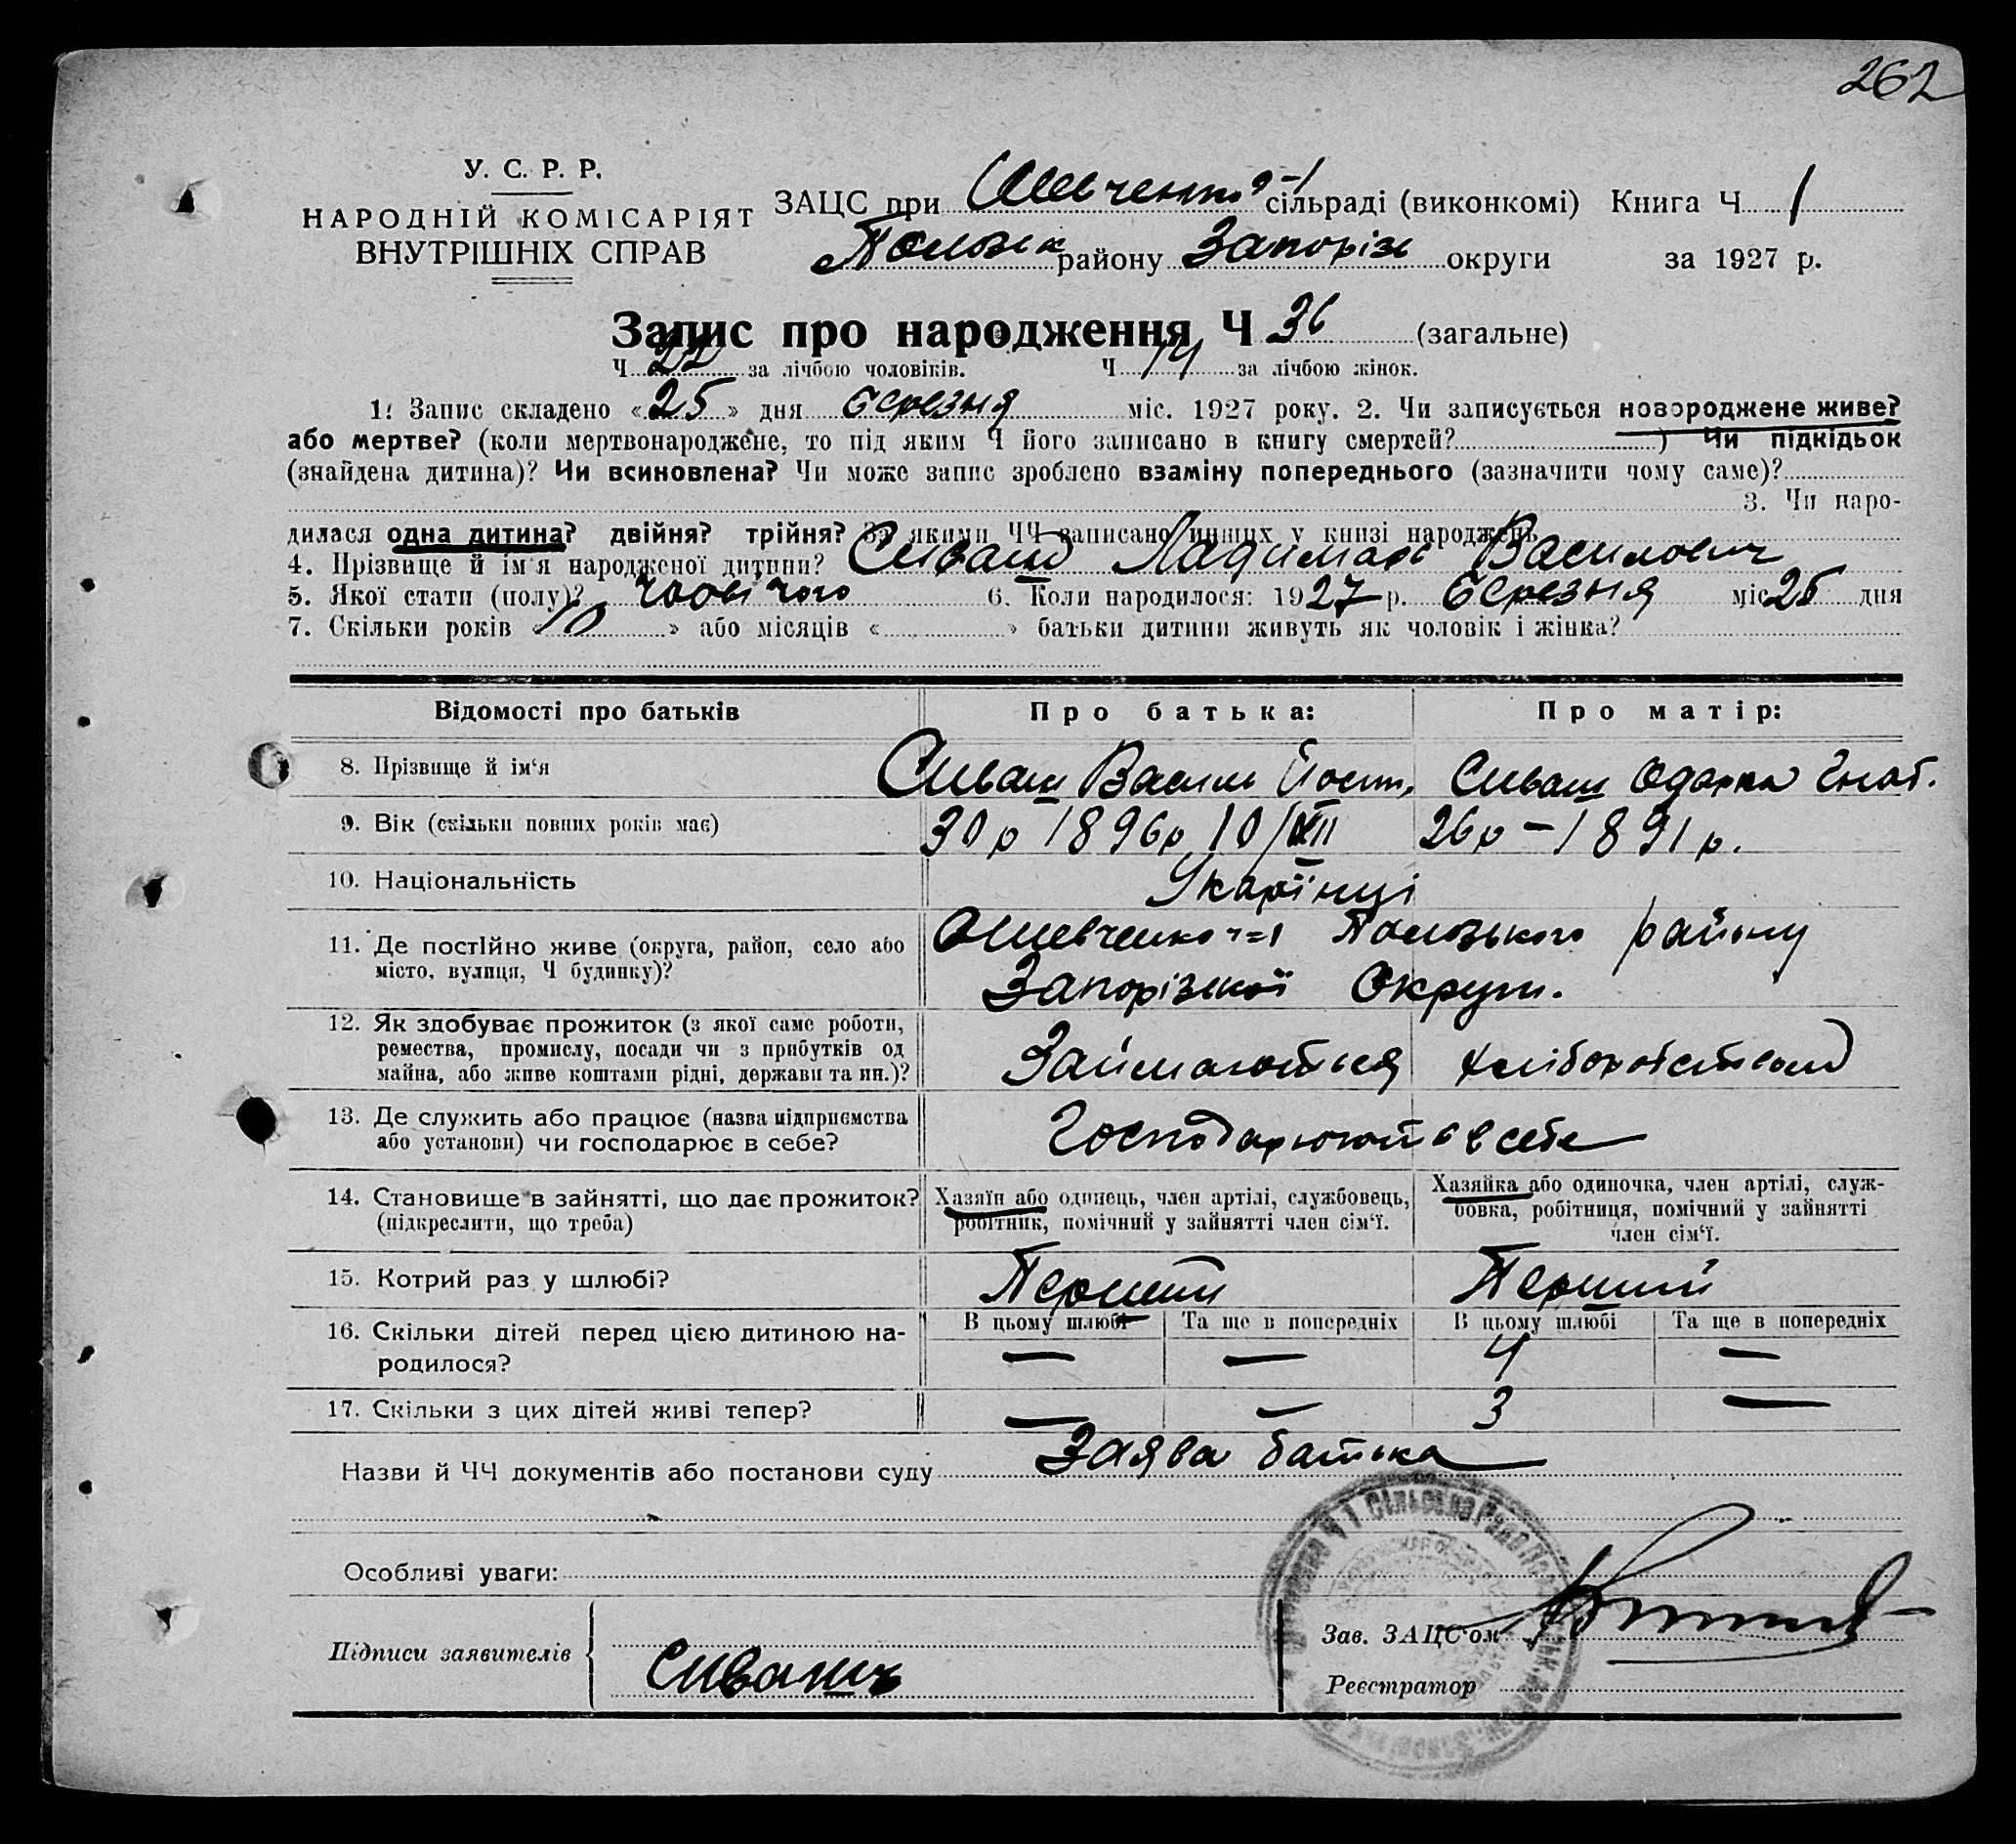 262
У. С. Р. Р.
НАРОДНІЙ КОМІСАРІЯТ
ВНУТРІШНІХ СПРАВ
ЗАЦС при Шевченко ч-1 сільраді (виконкомі) Книга Ч 1
району Запорізь округи за 1927 р.
Запис про народження Ч 36 (загальне)
Ч 22 за лічбою чоловіків. Ч 14 за лічбою жінок.
1. Запис складено «25» дня березня міс. 1927 року. 2. Чи записується новороджене живе?
або мертве? (коли мертвонароджене, то під яким Ч його записано в книгу смертей? ) Чи підкідьок
(знайдена дитина)? Чи всиновлена? Чи може запис зроблено взаміну попереднього (зазначити чому саме)?
3. Чи наро-
дилася одна дитина? двійня? трійня? За якими ЧЧ записано инших у книзі народжень
4. Прізвище й ім'я народженої дитини? Сиваш Ладимарь Василович
5. Якої стати (полу)? 6. Коли народилося: 1927 р. березня міс 25 дня
7. Скільки років «10» або місяців « » батьки дитини живуть як чоловік і жінка?
Відомості про батьків Про батька: Про матір:
8. Прізвище й ім'я Сиваш Василь Сиваш Одарка Гнат.
9. Вік (скільки повних років має) 30 р 1896р 10/XII 26р - 1891 р.
10. Національність Украінці
11. Де постійно живе (округа, район, село або Шевченко ч=1 Пологського району
місто, вулиця, Ч будинку)? Запорізької Округи.
12. Як здобуває прожиток (з якої саме роботи,
ремества, промислу, посади чи з прибутків од Займаються хліборобством
майна, або живе коштами рідні, держави та ин.)?
13. Де служить або працює (назва підприємства Господарюють в себе
або установи) чи господарює в себе?
14. Становище в зайнятті, що дає прожиток? Хазяїн або одинець, член артілі, службовець, Хазяйка або одиночка, член артілі, служ-
(підкреслити, що треба) робітник, помічний у зайнятті член сім'ї. бовка, робітниця, помічний у зайнятті
член сім'ї.
15. Котрий раз у шлюбі? Перший Перший
16. Скільки дітей перед цією дитиною на- В цьому шлюбі Та ще в попередніх В цьому шлюбі Та ще в попередніх
родилося? — — 4 —
17. Скільки з цих дітей живі тепер? — — 3 —
Назви й ЧЧ документів або постанови суду Заява батька
Особливі уваги:
Підписи заявителів Сивашъ
Зав. ЗАЦС'ом
Реєстратор